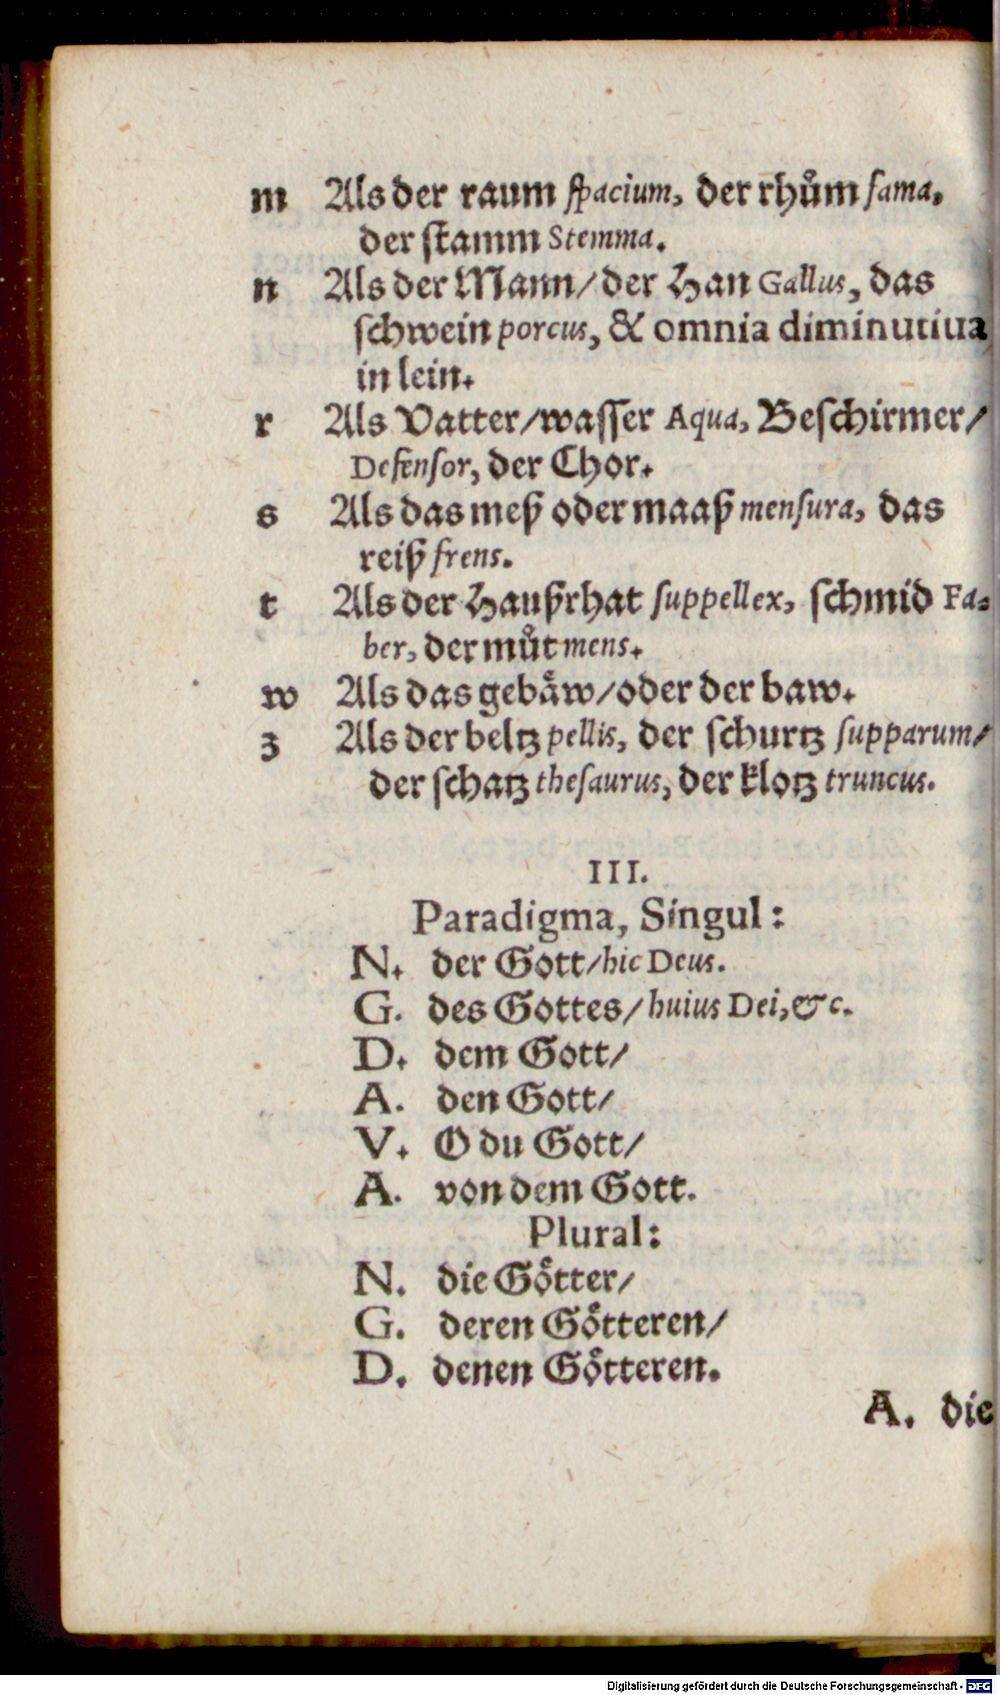 m Als der raum ſpacium, der rhuͦm fama,
der ſtamm Stemma.
n Als der Mann/ der Han Gallus, das
ſchwein porcus, & omnia diminutiua
in lein.
r Als Vatter/ waſſer Aqua, Beſchirmer/
Defenſor, der Chor.
s Als das meß oder maaß menſura, das
reiß frens.
t Als der Haußrhat ſuppellex, ſchmid Fa-
ber, der muͦt mens.
w Als das gebaͤw/ oder der baw.
z Als der beltz pellis, der ſchurtz ſupparum/
der ſchatz theſaurus, der klotz truncus.
III.
Paradigma, Singul:
N. der Gott/ hic Deus.
G. des Gottes/ huius Dei, &c.
D. dem Gott/
A. den Gott/
V. O du Gott/
A. von dem Gott.
Plural:
N. die Goͤtter/
G. deren Goͤtteren/
D. denen Goͤtteren.
A. die
Digitalisierung gefördert durch die Deutsche Forschungsgemeinschaft - DFG